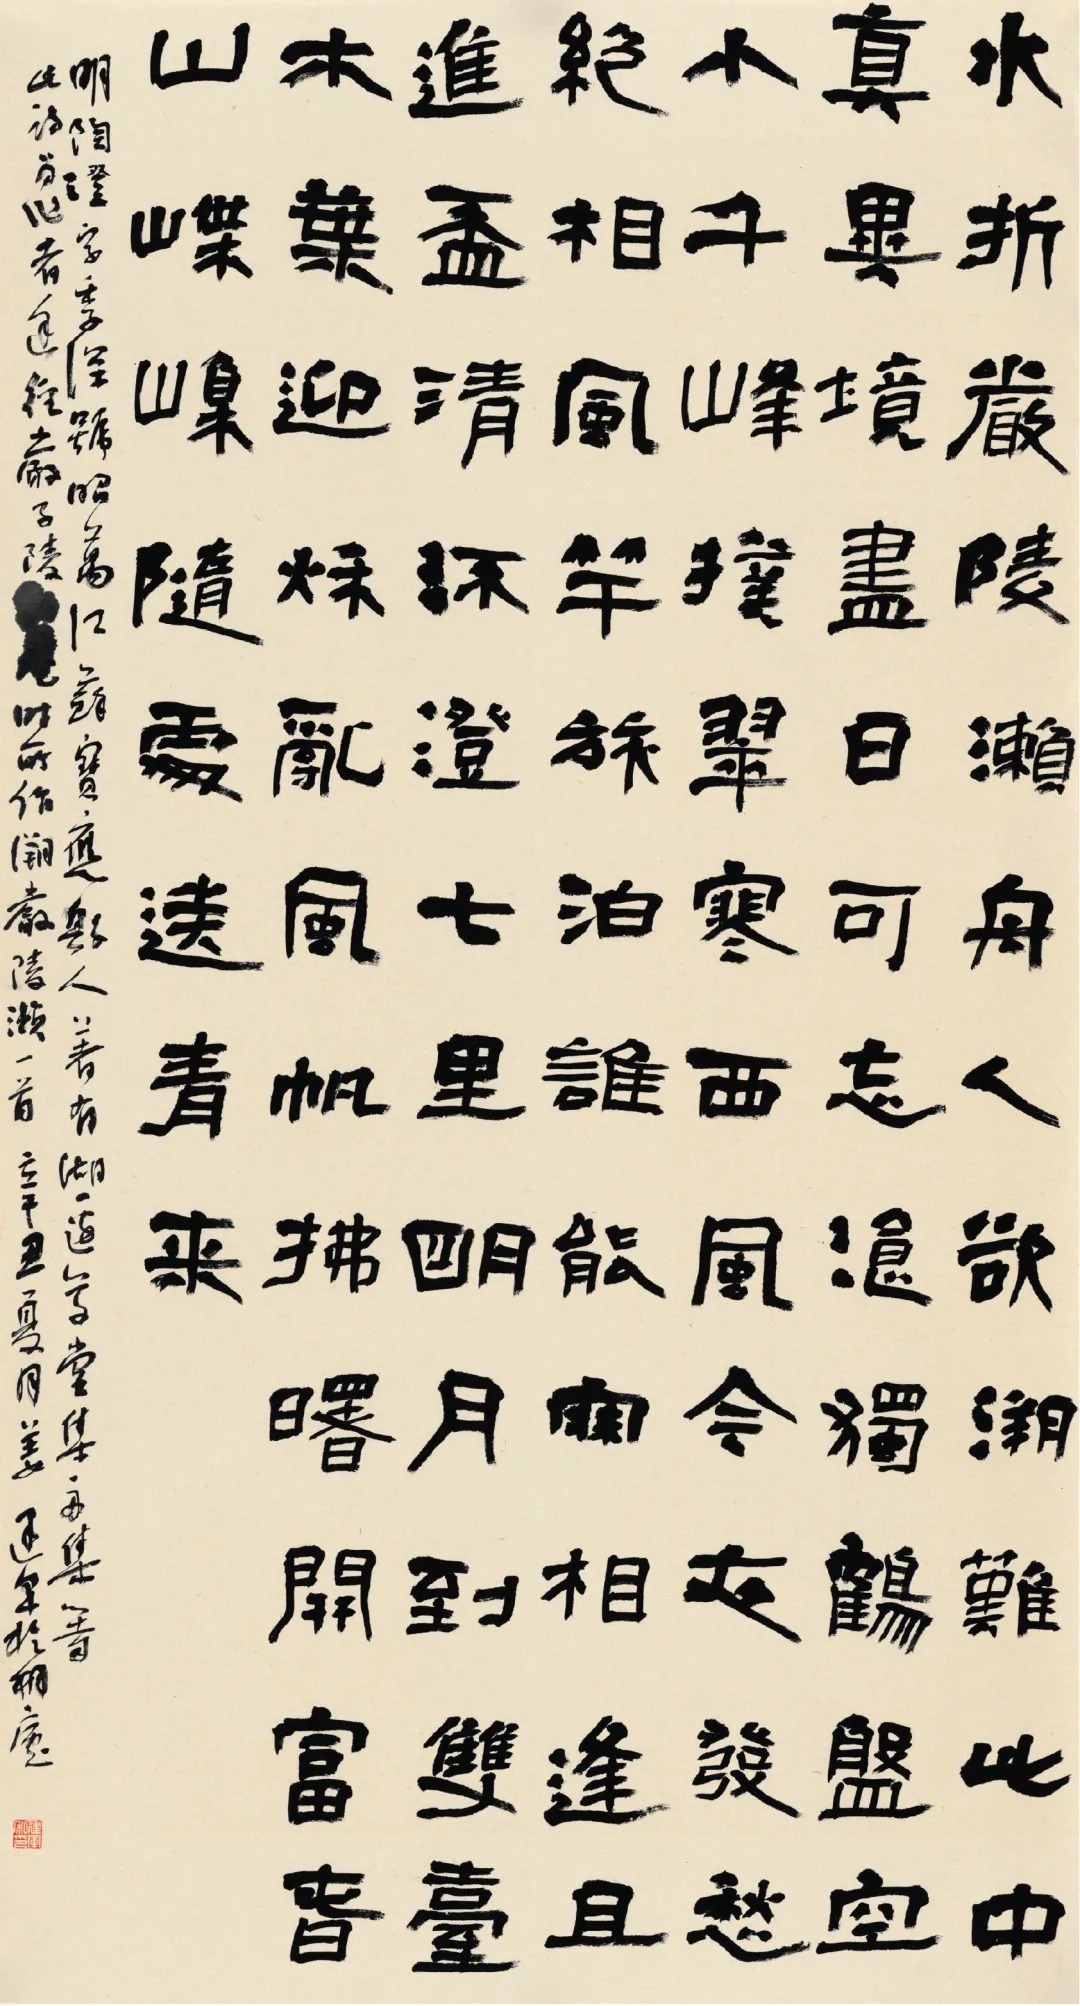 水折嚴陵瀨舟人欲溯難此中
真異境盡日可忘飡獨鶴盤空
小千峰撲翠寒西風今夜發愁
絕相風竿旅泊誰能問相逢且
進盃清環澄七里明月到雙臺
木葉迎秌亂風帆拂曙開富春
山嶫嵲隨處送青来
明陶澄字季深號昭萬江蘇寶應縣人著有湖邊草堂集舟集等
此詩為作者途径嚴子陵時所作溯嚴陵瀨一首 辛丑夏月姜